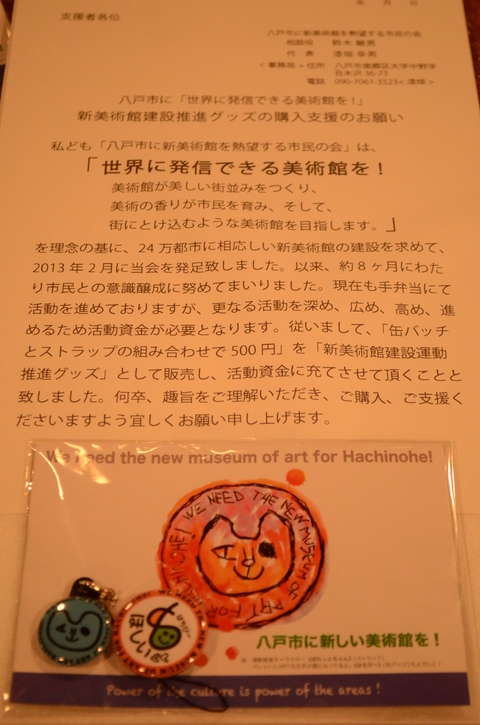 年 月 日
支援者各位
八戸市に新美術館を熱望する市民の会
相談役 鈴木 継男
代 表 漆畑 幸男
<事務局>住所 八戸市南郷区大字中野字
丑木沢 36-73
電話 090-7061-3523<漆畑>
八戸市に「世界に発信できる美術館を!」
新美術館建設推進グッズの購入支援のお願い
私ども「八戸市に新美術館を熱望する市民の会」は、
「世界に発信できる美術館を!
美術館が美しい街並みをつくり、
美術の香りが市民を育み、そして、
街にとけ込むような美術館を目指します。」
を理念の基に、24万都市に相応しい新美術館の建設を求めて、
2013年2月に当会を発足致しました。以来、約8ヶ月にわた
り市民との意識醸成に努めてまいりました。現在も手弁当にて
活動を進めておりますが、更なる活動を深め、広め、高め、進
めるため活動資金が必要となります。従いまして、「缶バッチ
とストラップの組み合わせで500円」を「新美術館建設運動
推進グッズ」として販売し、活動資金に充てさせて頂くことと
致しました。何卒、趣旨をご理解いただき、ご購入、ご支援く
ださいますよう宜しくお願い申し上げます。
We need the new museum of art for Hachinohe!
WE NEED THE NEW MUSEUM OF ART FOR HACHINOHE!
八戸市に新しい美術館を!
Power of the culture is power of the areas !